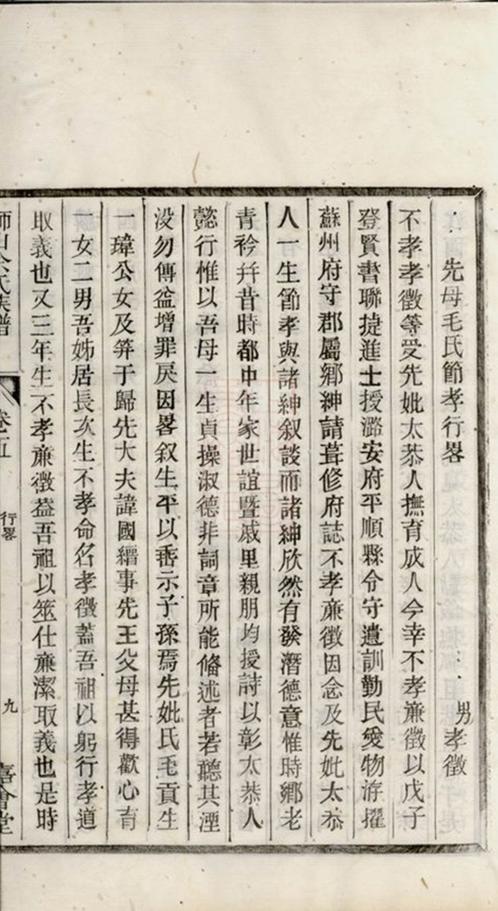 先母毛氏節孝行畧
男孝徵
不孝孝徵等受先妣太恭人撫育成人今幸不孝廉徵以戊子
登賢書聯捷進士授潞安府平順縣令守遺訓勤民愛物洊擢
蘇州府守郡屬鄉紳請葺修府誌不孝廉徵因念及先妣太恭
人一生節孝與諸紳叙談而諸紳欣然有發潛德意惟時鄉老
青衿幷昔時都中年家世誼暨戚里親朋均授詩以彰太恭人
懿行惟以吾母一生貞操淑德非詞章所能備述者若聽其湮
没勿傳益增罪戾因畧叙生平以垂示子孫焉先妣氏毛貢生
一瑋公女及筓于歸先大夫諱國縉事先王父母甚得歡心育
一女二男吾姊居長次生不孝命名孝徵蓋吾祖以躬行孝道
取義也又三年生不孝廉徵葢吾祖以筮仕廉潔取義也是時
氏族譜
卷五
行畧
九
喜會堂